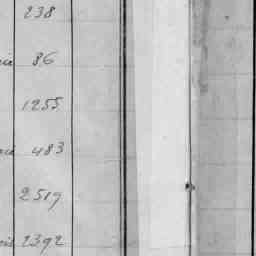 238
86
1255
483
2519
2392